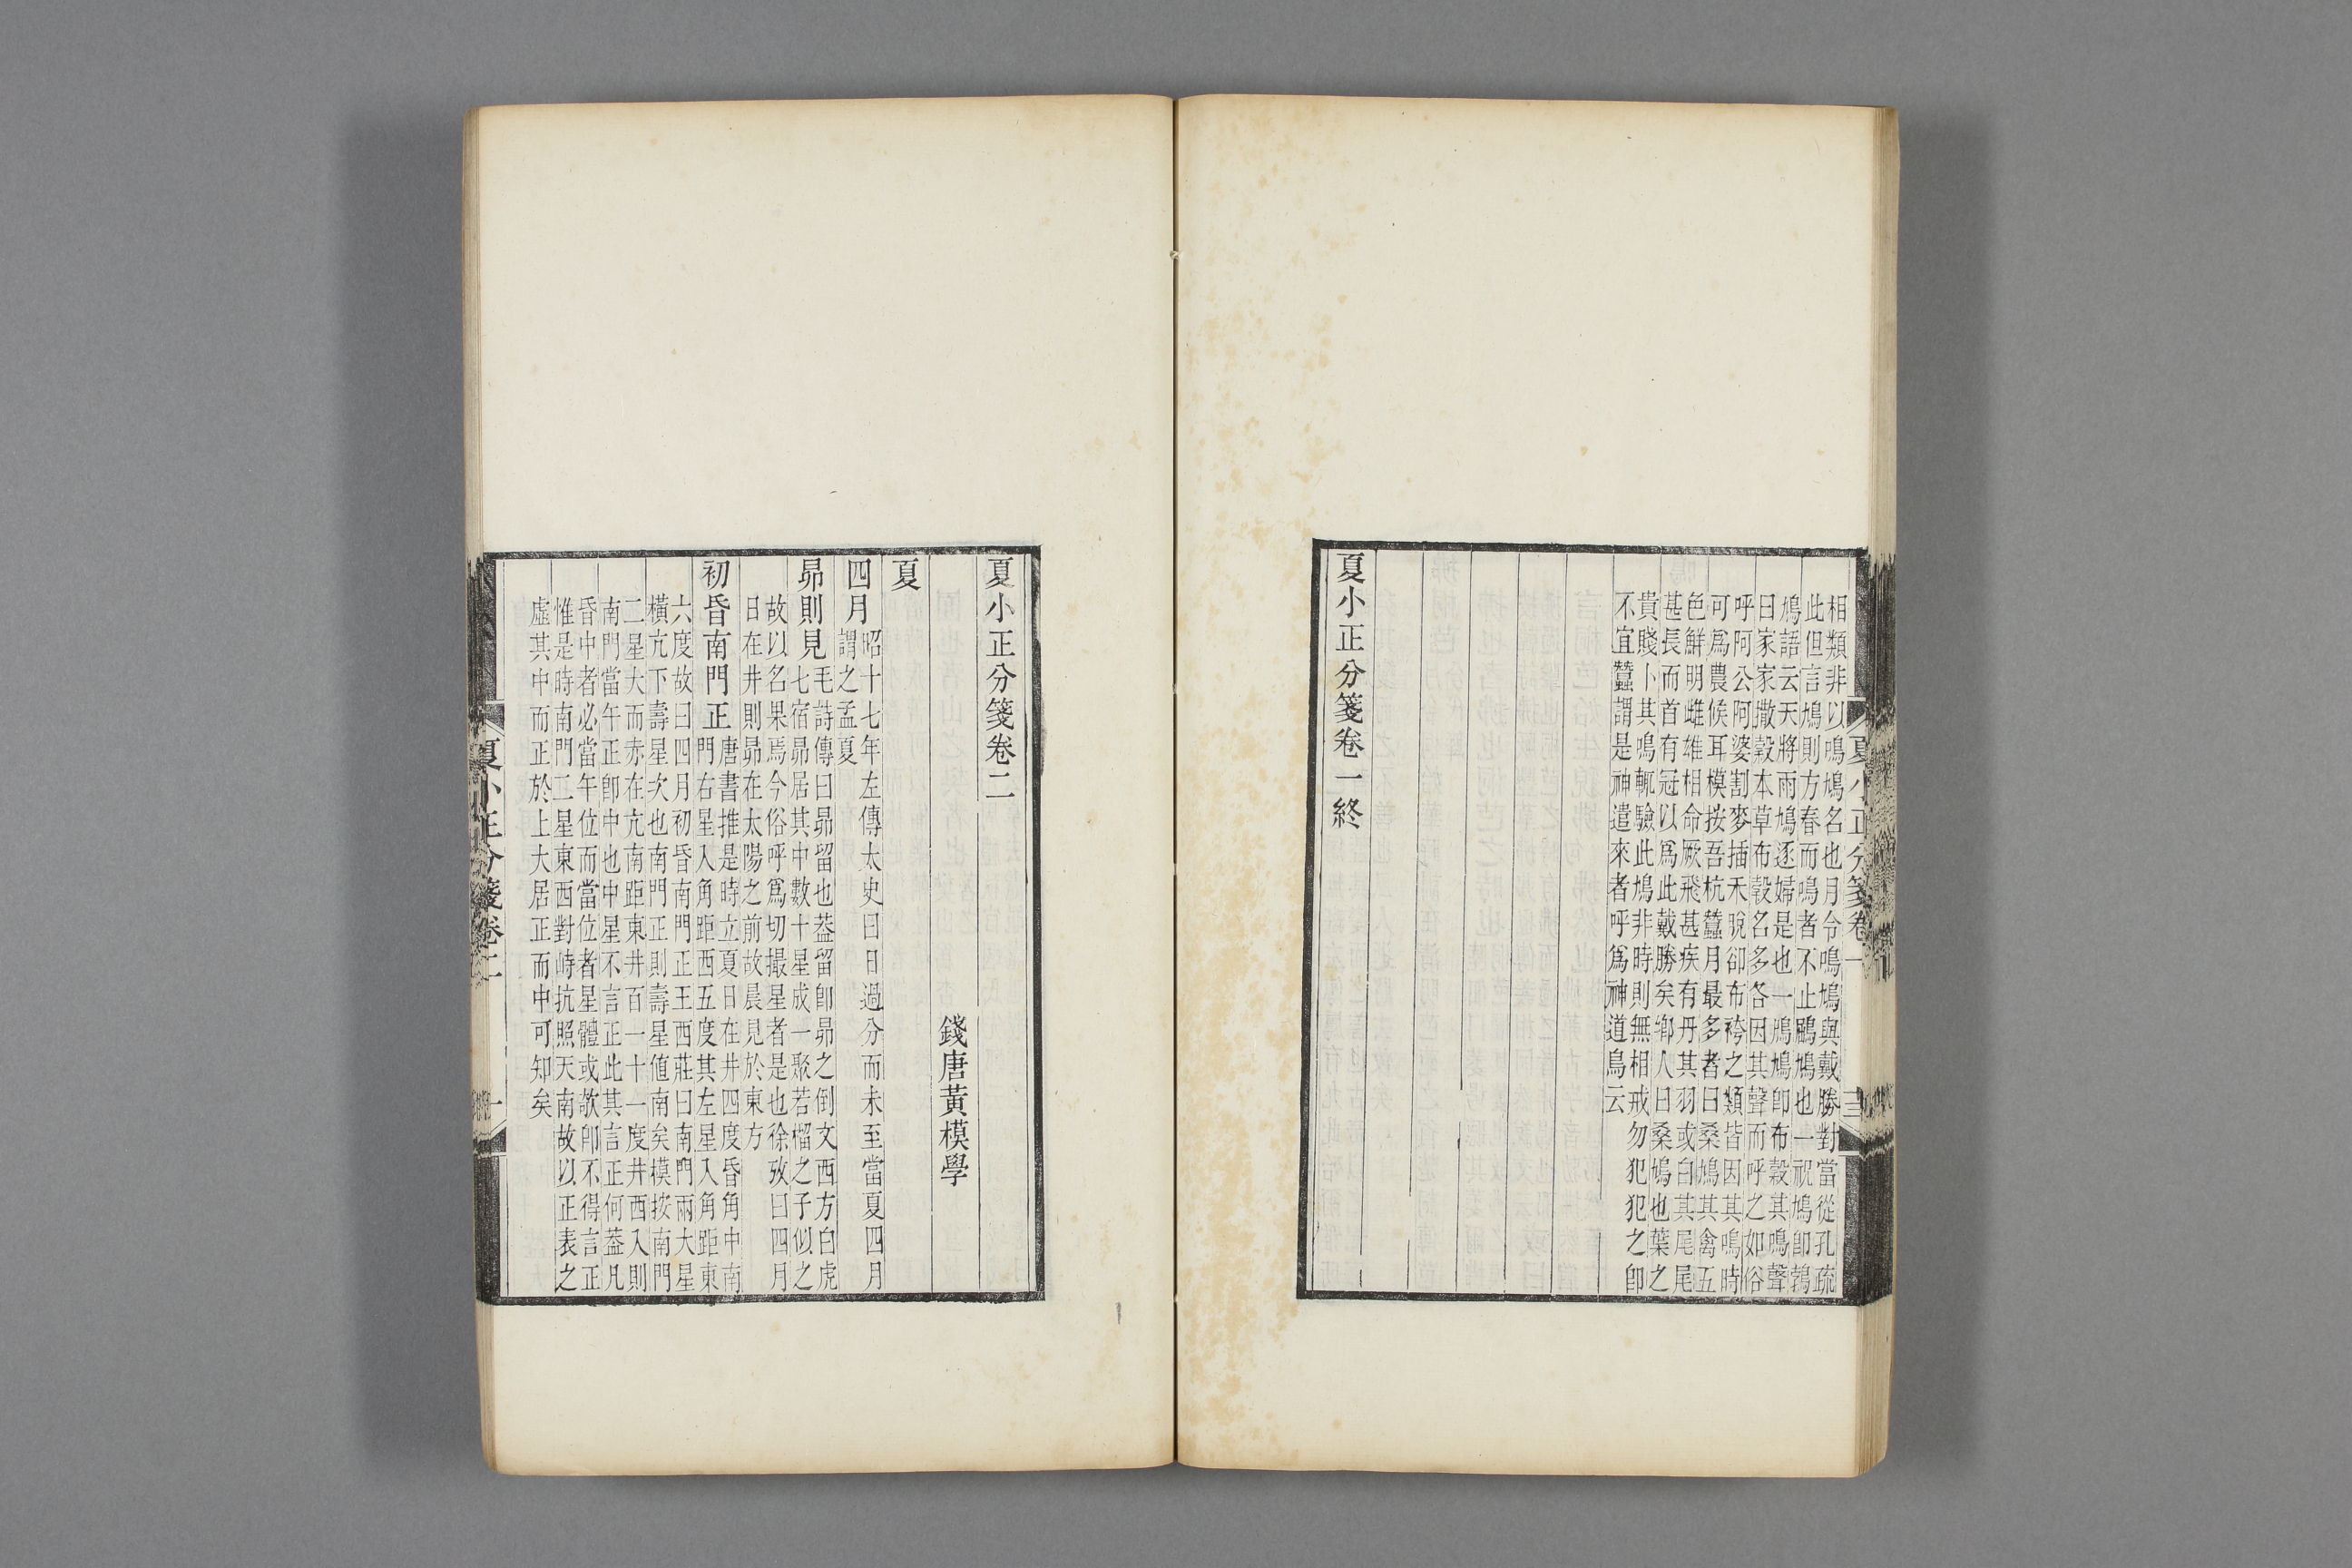 相類非以鳴鳩名也月令鳴鳩與戴勝對當從孔疏
此但言鳩則方春而鳴者不止鷉鳩也一祝鳩卽鵓
鳩語云天將雨鳩逐婦是也一鳲鳩卽布穀其鳴聲
曰家家撒穀本草布穀名多各因其聲而呼之如俗
呼阿公阿婆割麥插禾脫卻布袴之類皆因其鳴時
可爲農候耳模按吾杭蠶月最多者曰桑鳩其禽五
色鮮明雌雄相命厥飛甚疾有丹其羽或白其尾尾
甚長而首有冠以爲此戴勝矣鄉人曰桑鳩也葉之
貴賤卜其鳴輒驗此鳩非時則無相戒勿犯犯之卽
不宜蠶謂是神遣來者呼爲神道鳥云
夏小正分箋卷一終
夏小正分箋卷一
夏小正分箋卷二
錢唐黃模學
夏
四月昭十七年左傳太史曰日過分而未至當夏四月
謂之孟夏
昴則見毛詩傳曰昴留也葢留卽昴之倒文西方白虎
七宿昴居其中數十星成一聚若榴之子似之
故以名果焉今俗呼爲切撮星者是也徐攷曰四月
日在井則昴在太陽之前故晨見於東方
初昏南門正唐書推是時立夏日在井四度昏角中南
門右星入角距西五度其左星入角距東
六度故曰四月初昏南門正王西莊曰南門兩大星
橫亢下壽星次也南門正則壽星值南矣模按南門
二星大而赤在亢南距東井百一十一度井西入則
南門當午正卽中也中星不言正此其言正何葢凡
昏中者必當午位而當位者星體或欹卽不得言正
惟是時南門二星東西對峙抗照天南故以正表之
虛其中而正於上大居正而中可知矣
夏小正分箋卷二
一